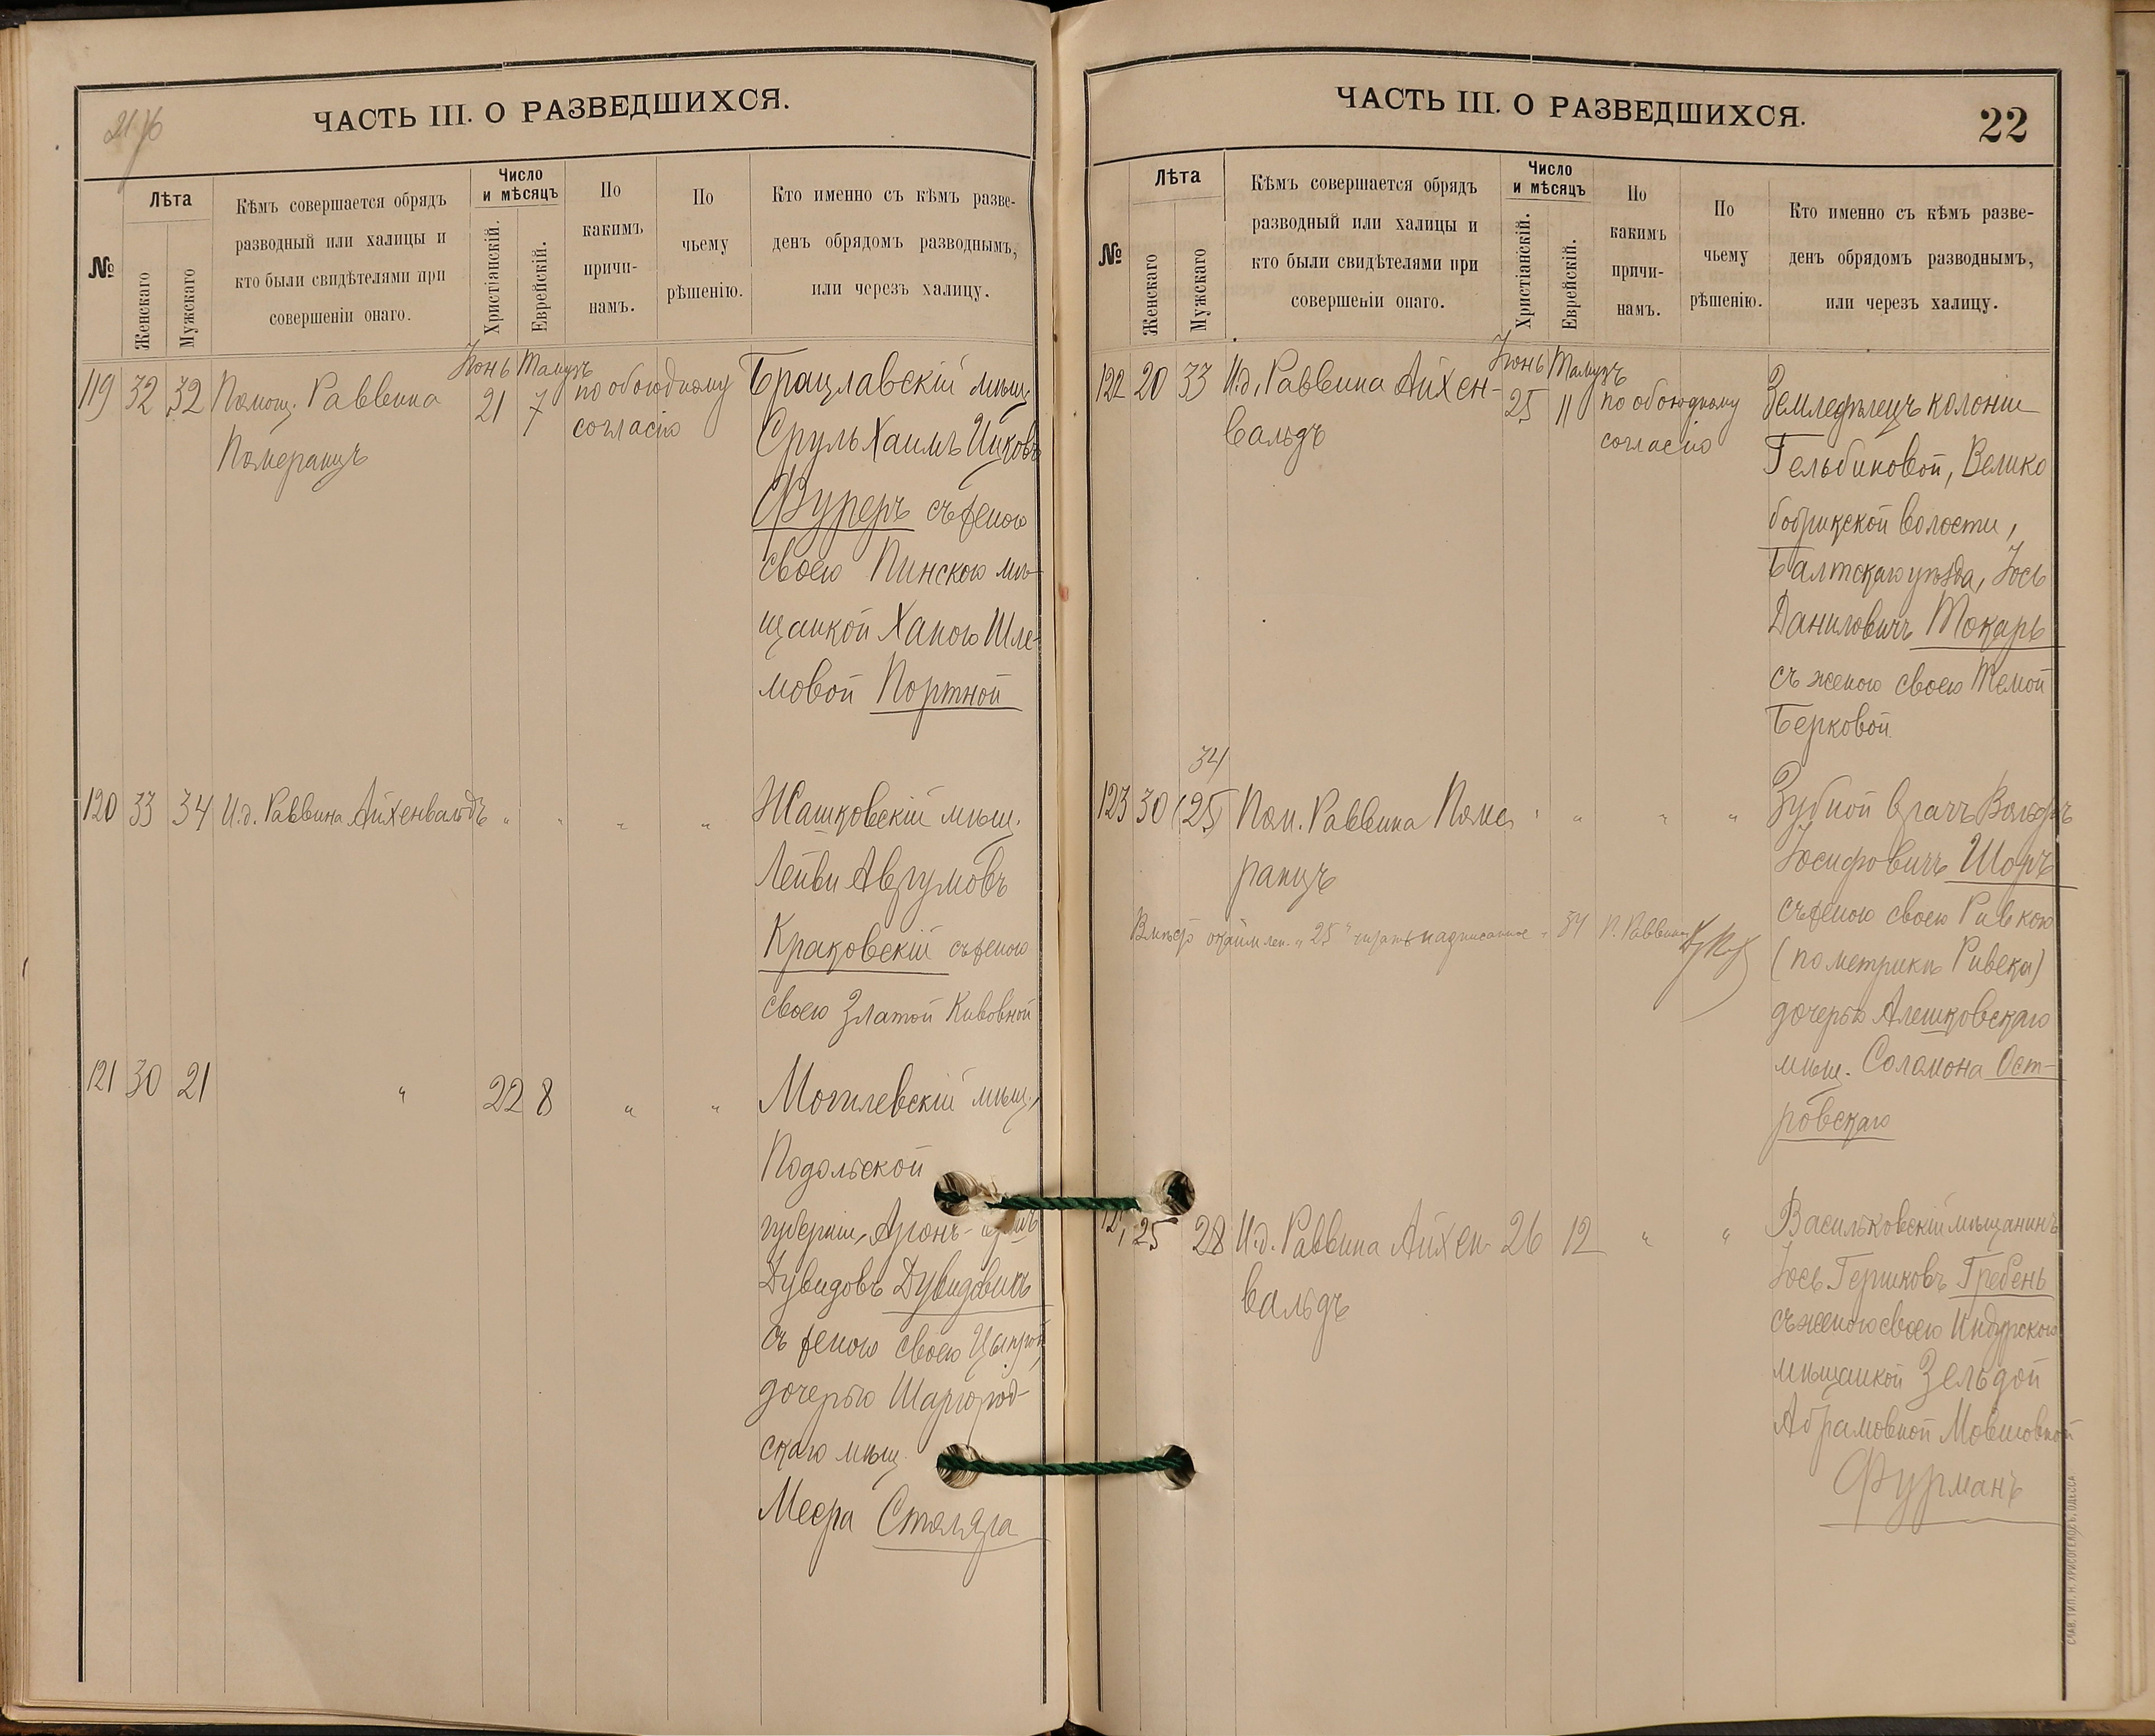 ЧАСТЬ III. О РАЗВЕДШИХСЯ.
№
Лѣта
Женскаго
Мужскаго
Кѣмъ совершается обрядъ
разводный или халицы и
кто были свидѣтелями при
совершеніи онаго.
Число
и мѣсяцъ
Христіанскій.
Еврейскій.
По
какимъ
причи-
намъ.
По
чьему
рѣшенію.
Кто именно съ кѣмъ разве-
денъ обрядомъ разводнымъ,
или черезъ халицу.
119 32 32
Помощ. Раввина
Померанцъ
Іюнь Тамузъ
21 7
по обоюдному
согласію
Брацлавскій мѣщ.
Сруль Хаимъ Ицковъ
Фуреръ съ женою
своею Пинскою мѣ-
щанкой Ханою Шле-
мовой Портной
120 33 34 И.д. Раввина Айхенвальдъ " " " "
Жашковскій мѣщ.
Лейви Аврумовъ
Краковскій съ женою
своею Златой Кивовной
121 30 21 " 22 8 " "
Могилевскій мѣщ.,
Подольской
губерніи, Аронъ-
Дувидовъ Дувидовичъ
съ женою своею
дочерью Шаргород-
скаго мѣщ.
Меера Столяра
ЧАСТЬ III. О РАЗВЕДШИХСЯ.
22
№
Лѣта
Женскаго
Мужскаго
Кѣмъ совершается обрядъ
разводный или халицы и
кто были свидѣтелями при
совершеніи онаго.
Число
и мѣсяцъ
Христіанскій.
Еврейскій.
По
какимъ
причи-
намъ.
По
чьему
рѣшенію.
Кто именно съ кѣмъ разве-
денъ обрядомъ разводнымъ,
или черезъ халицу.
122 20 33
И.д. Раввина Айхен-
вальдъ
Іюнь Тамузъ
25 11
по обоюдному
согласію
Земледѣлецъ колоніи
Гельбиновой, Велико
бобрикской волости,
Балтскаго уѣзда, Іось
Даниловичъ Токарь
съ женою своею Темой
Берковой
34
123 30 (25)
Пом. Раввина Поме
ранцъ
" " " "
Зубной врачъ Вольфъ
Іосифовичъ Шоръ
съ женою своею Ривкою
(по метрикѣ Ривека)
дочерью Алешковскаго
мѣщ. Соломона Ост-
ровскаго
Вмѣсто " 25 " читать надписанное " 34 П. Раввина
25 28
И.д. Раввина Айхен-
вальдъ
26 12 " "
Васильковскій мѣщанинъ
Іось Гершковъ Гребень
съ женою своею Индурскою
мѣщанкой Зельдой
Абрамовной Мовшовной
Фурманъ
СЛАВ. ТИП. Н. ХРИСОГЕЛОСЪ, ОДЕССА